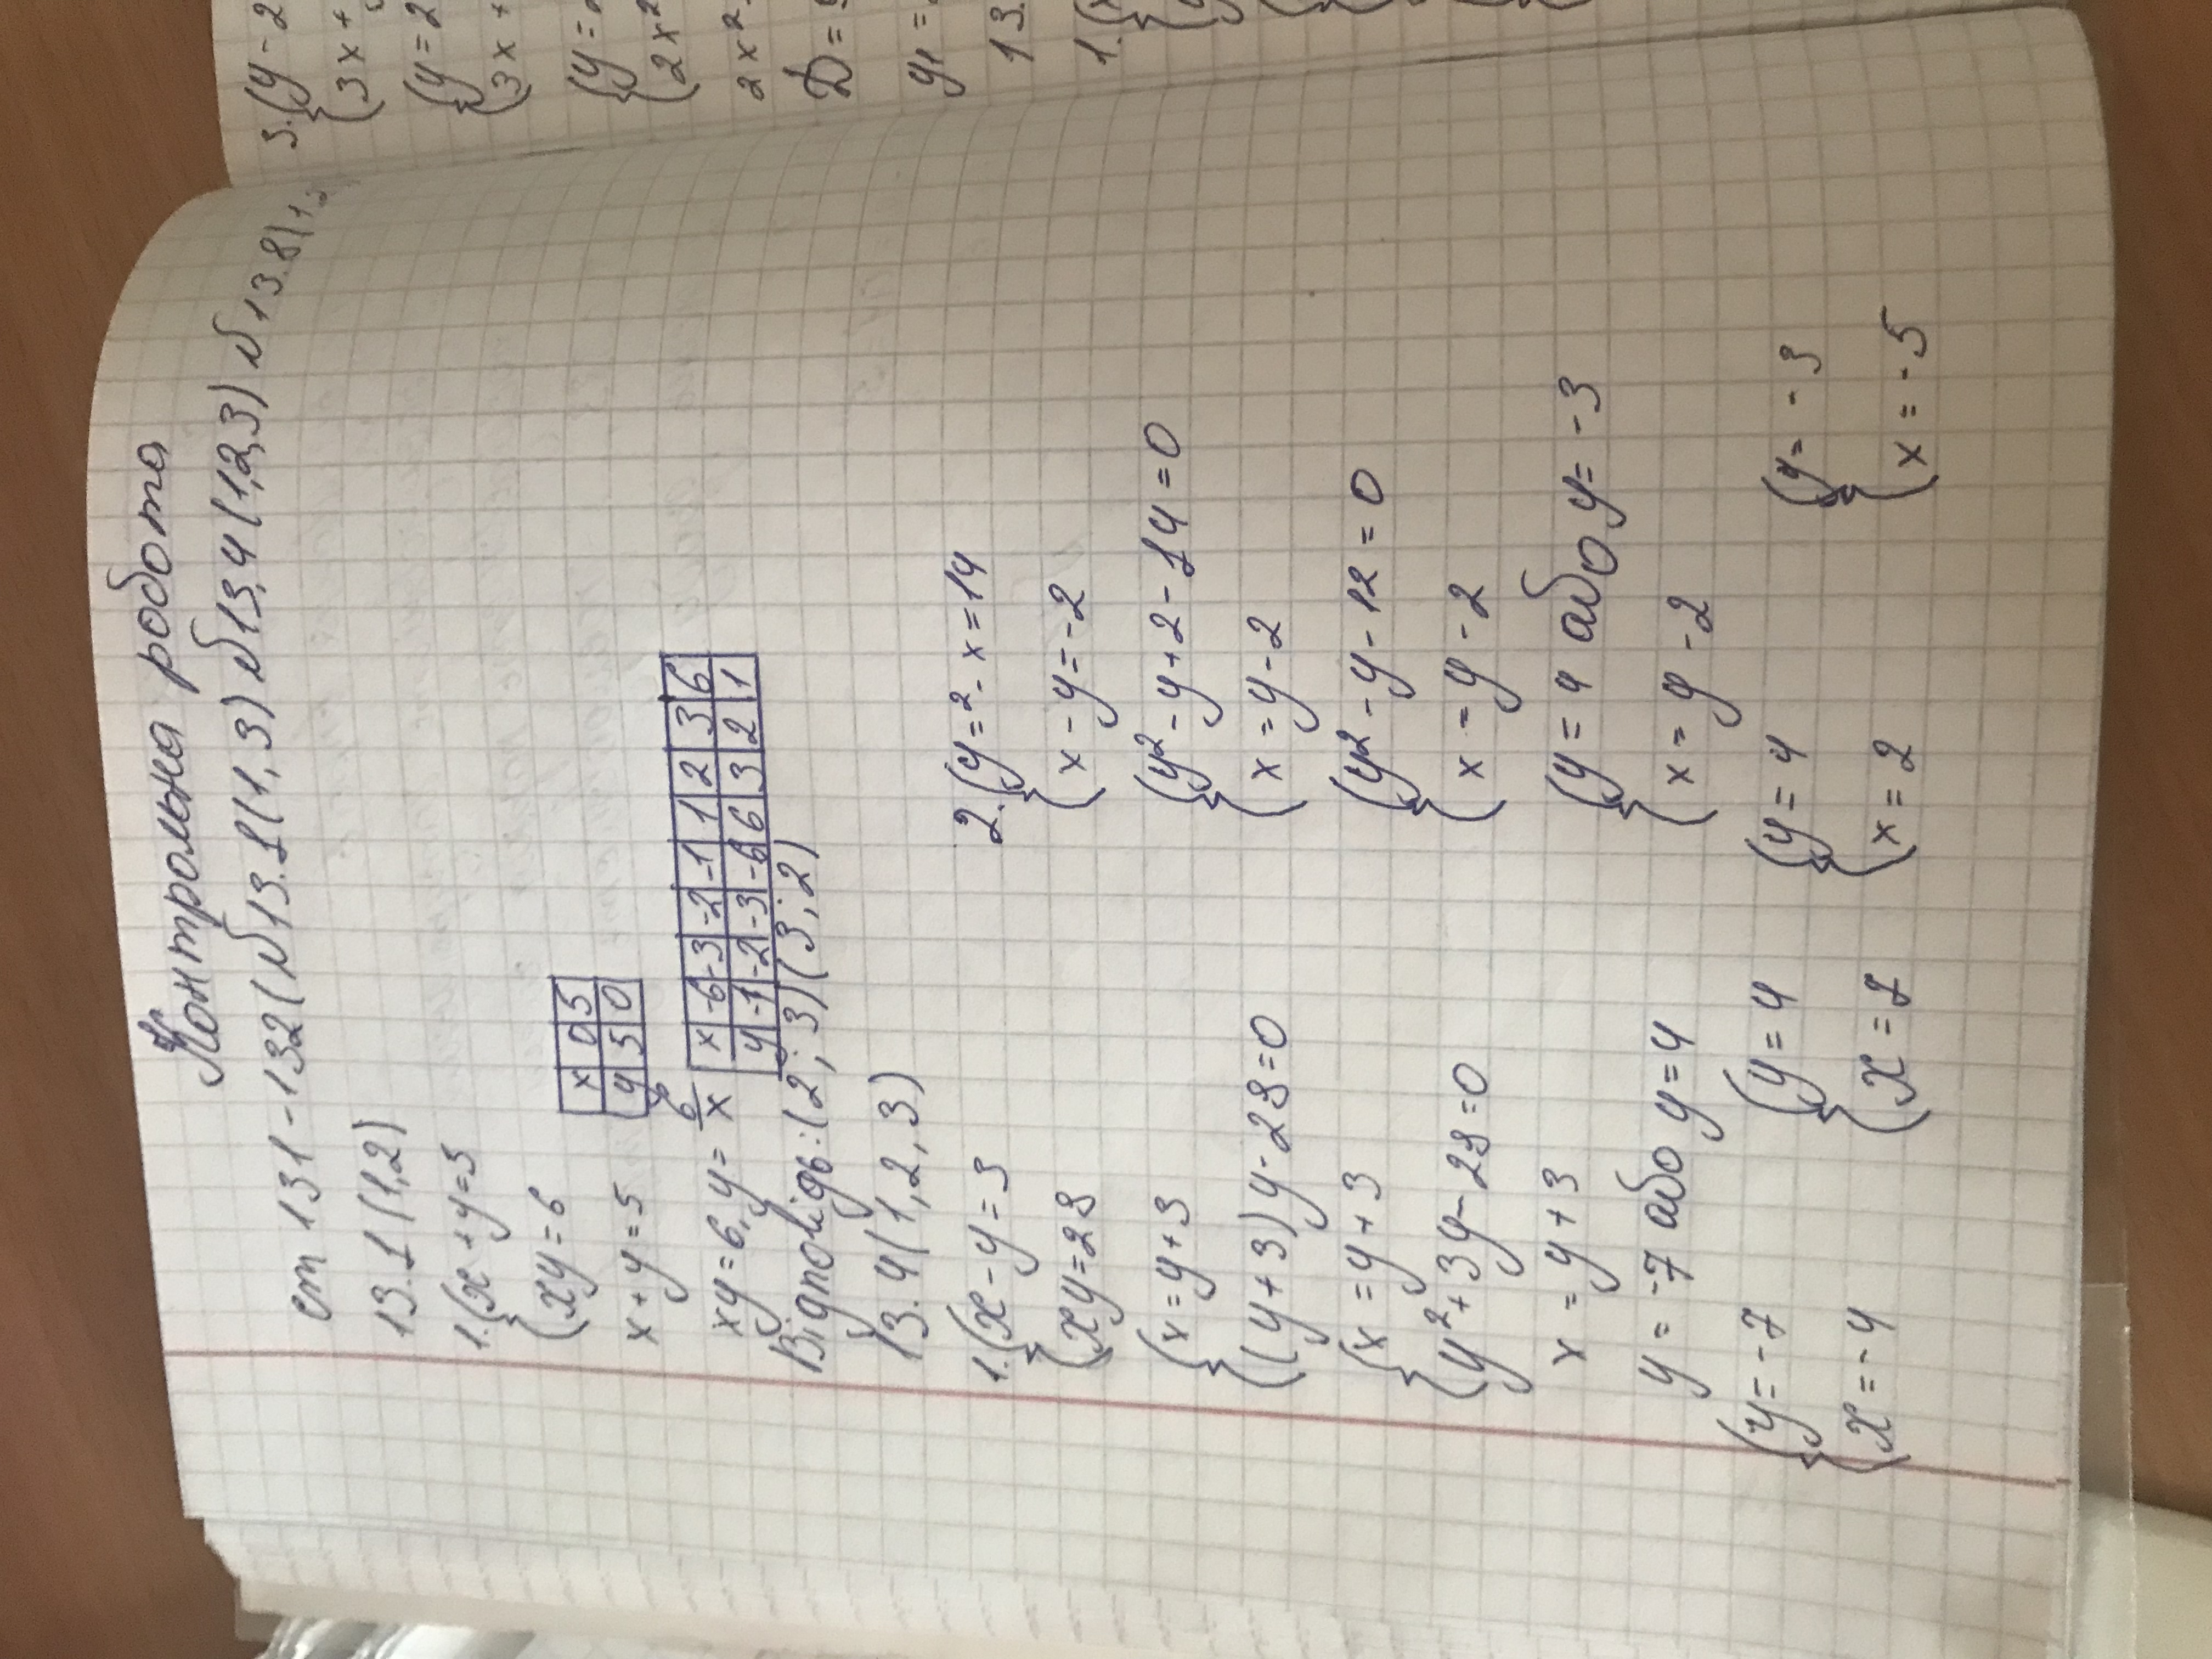 Контрольна робота
ст 131-132 (№13.1(1,3) №13,4(1,2,3) №13.8(1,
13.1(1,2)
1. {x+y=5
{xy=6
x+y=5
x 0 5
y 5 0
xy=6, y=6/x
x -6 -3 -2 -1 1 2 3 6
y -1 -2 -3 -6 6 3 2 1
Відповідь: (2; 3) (3; 2)
13.4(1,2,3)
1. {x-y=3
{xy=28
{x=y+3
{(y+3)y-28=0
{x=y+3
{y²+3y-28=0
x=y+3
y=-7 або y=4
{y=-7
{x=-4
{y=4
{x=7
2. {y=²-x=14
{x-y=-2
{y²-y+2-14=0
{x=y-2
{y²-y-12=0
{x=y-2
{y=4 або y=-3
{x=y-2
{y=4
{x=2
{y=-3
{x=-5
3. {y-2
{3x+
{y=2
{3x+
{y=
{2x²
2x²-
D=
y₁=
13.
1.